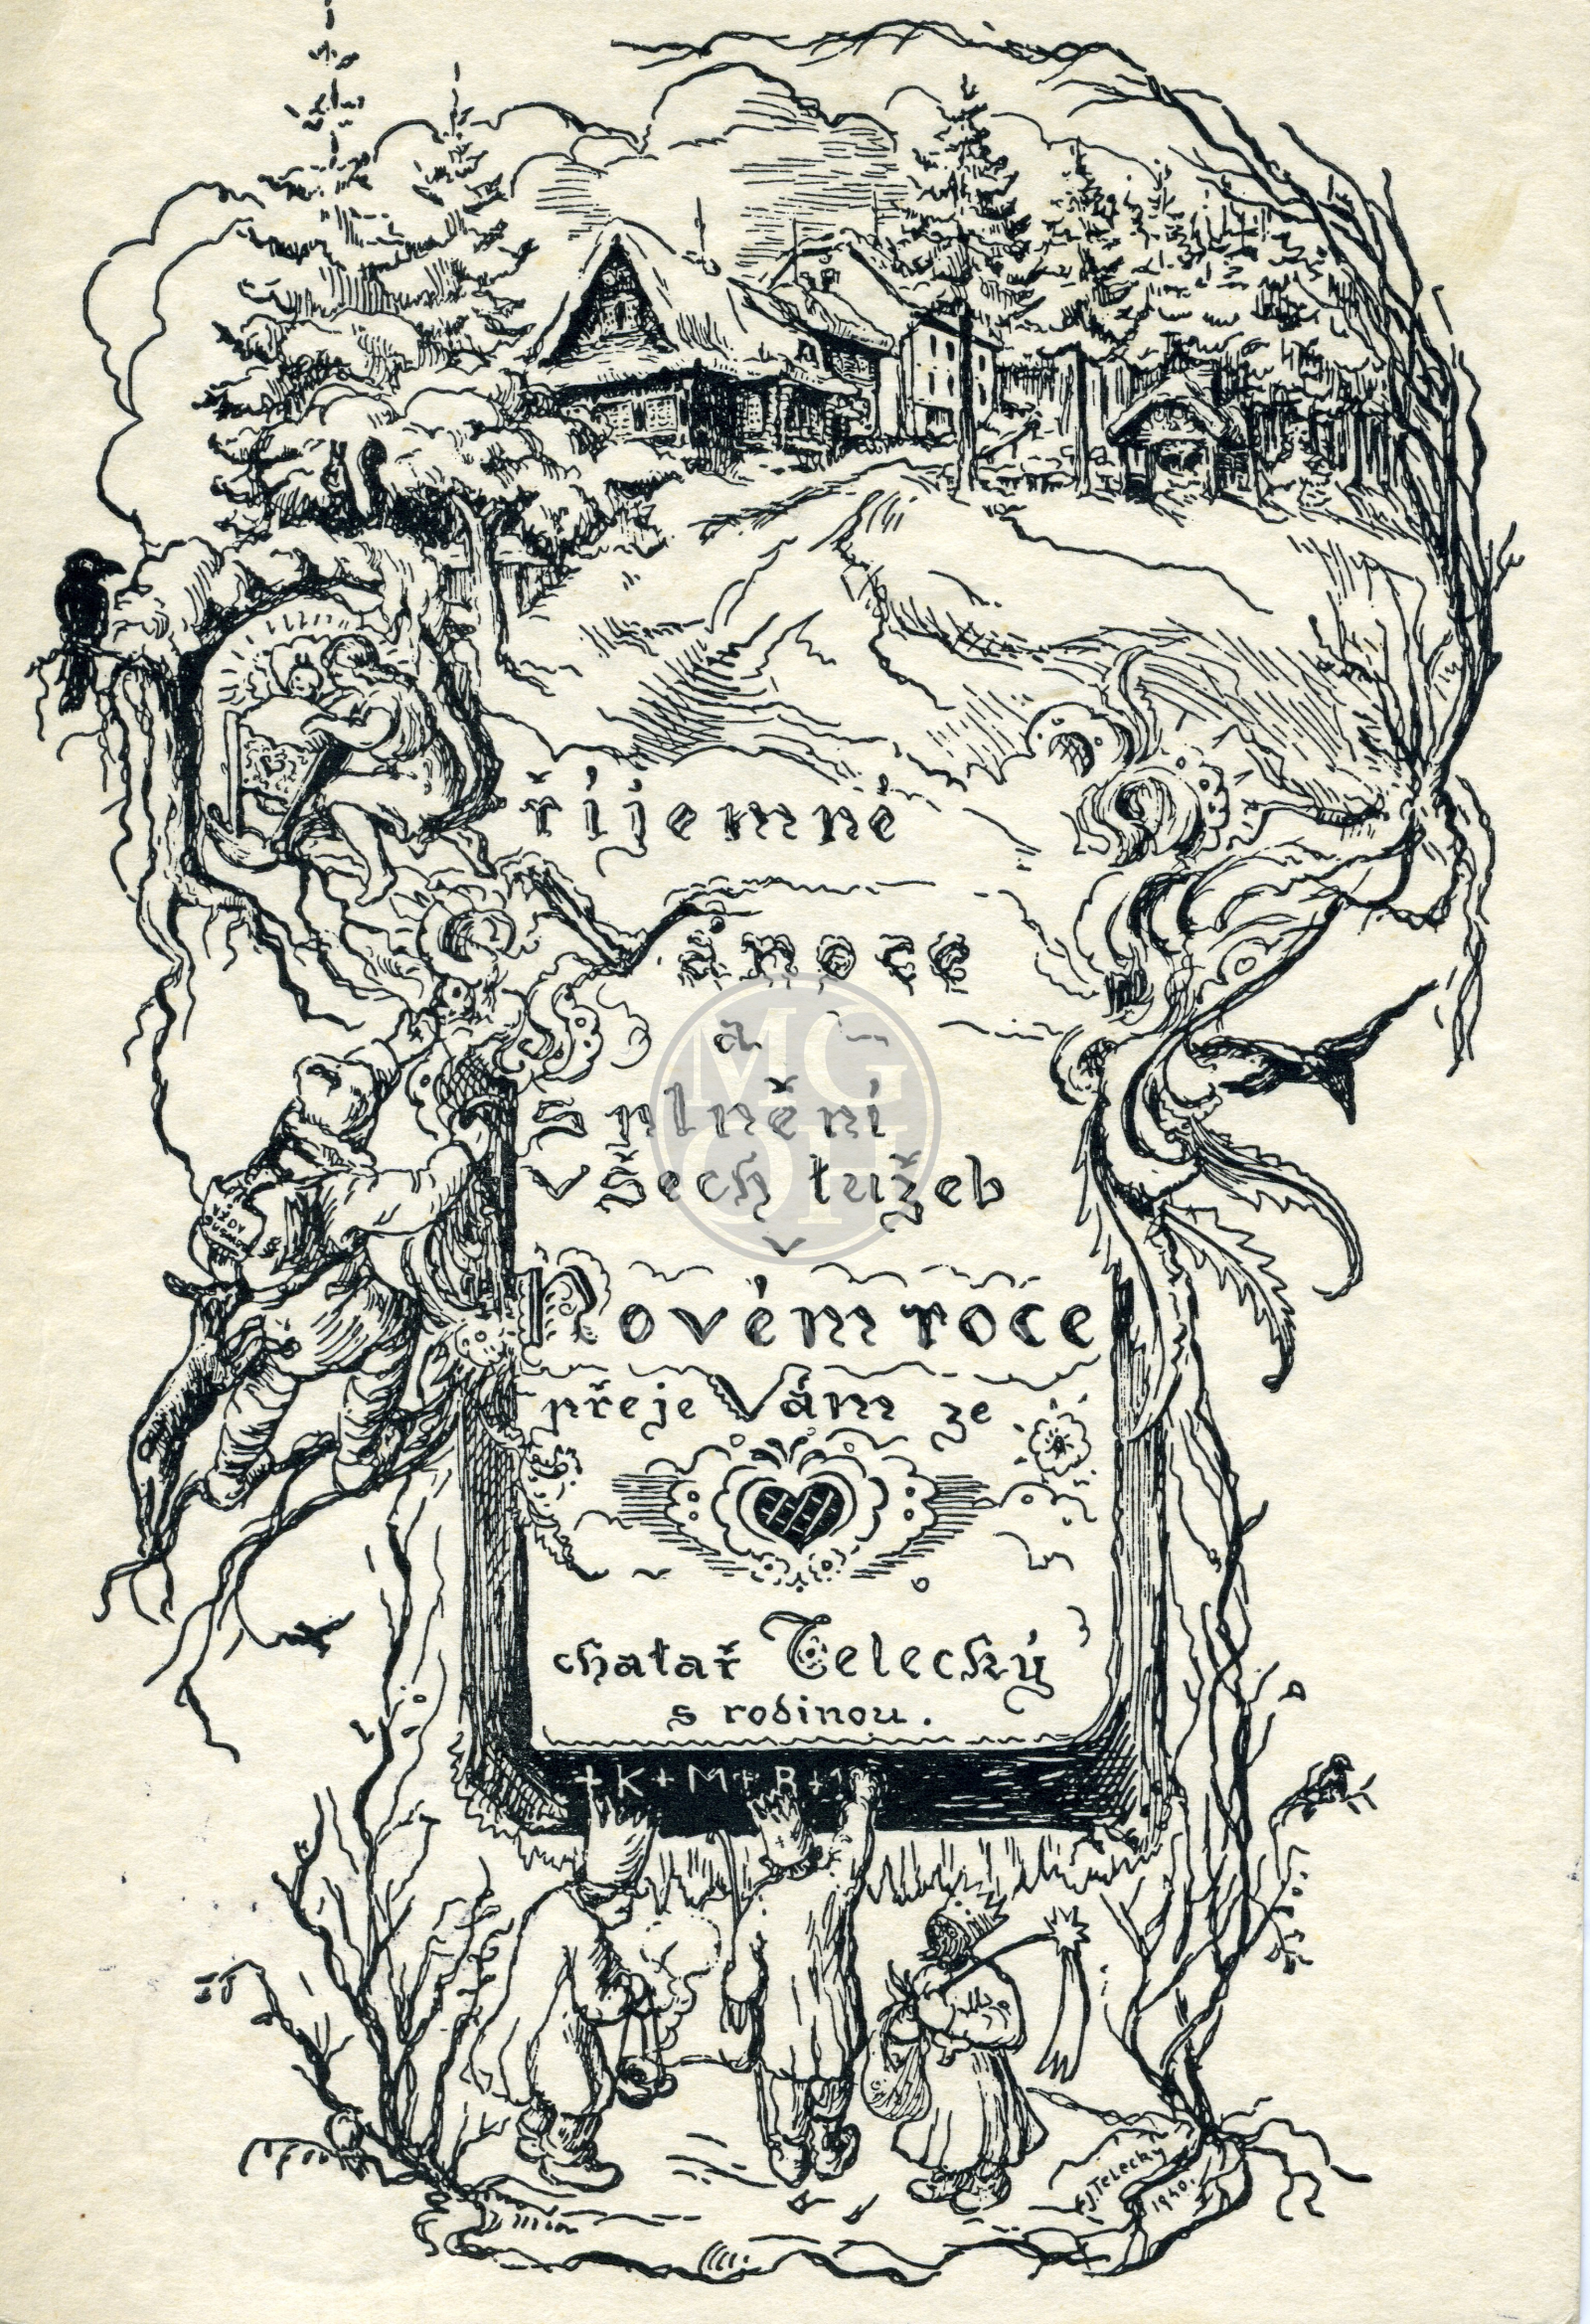 Příjemné
Vánoce
a
splnění
všech tužeb
v
Novém roce
přeje Vám ze
chatař Telecký
s rodinou.
+K+M+B+1
J. TELECKÝ
1940.
MG
OH